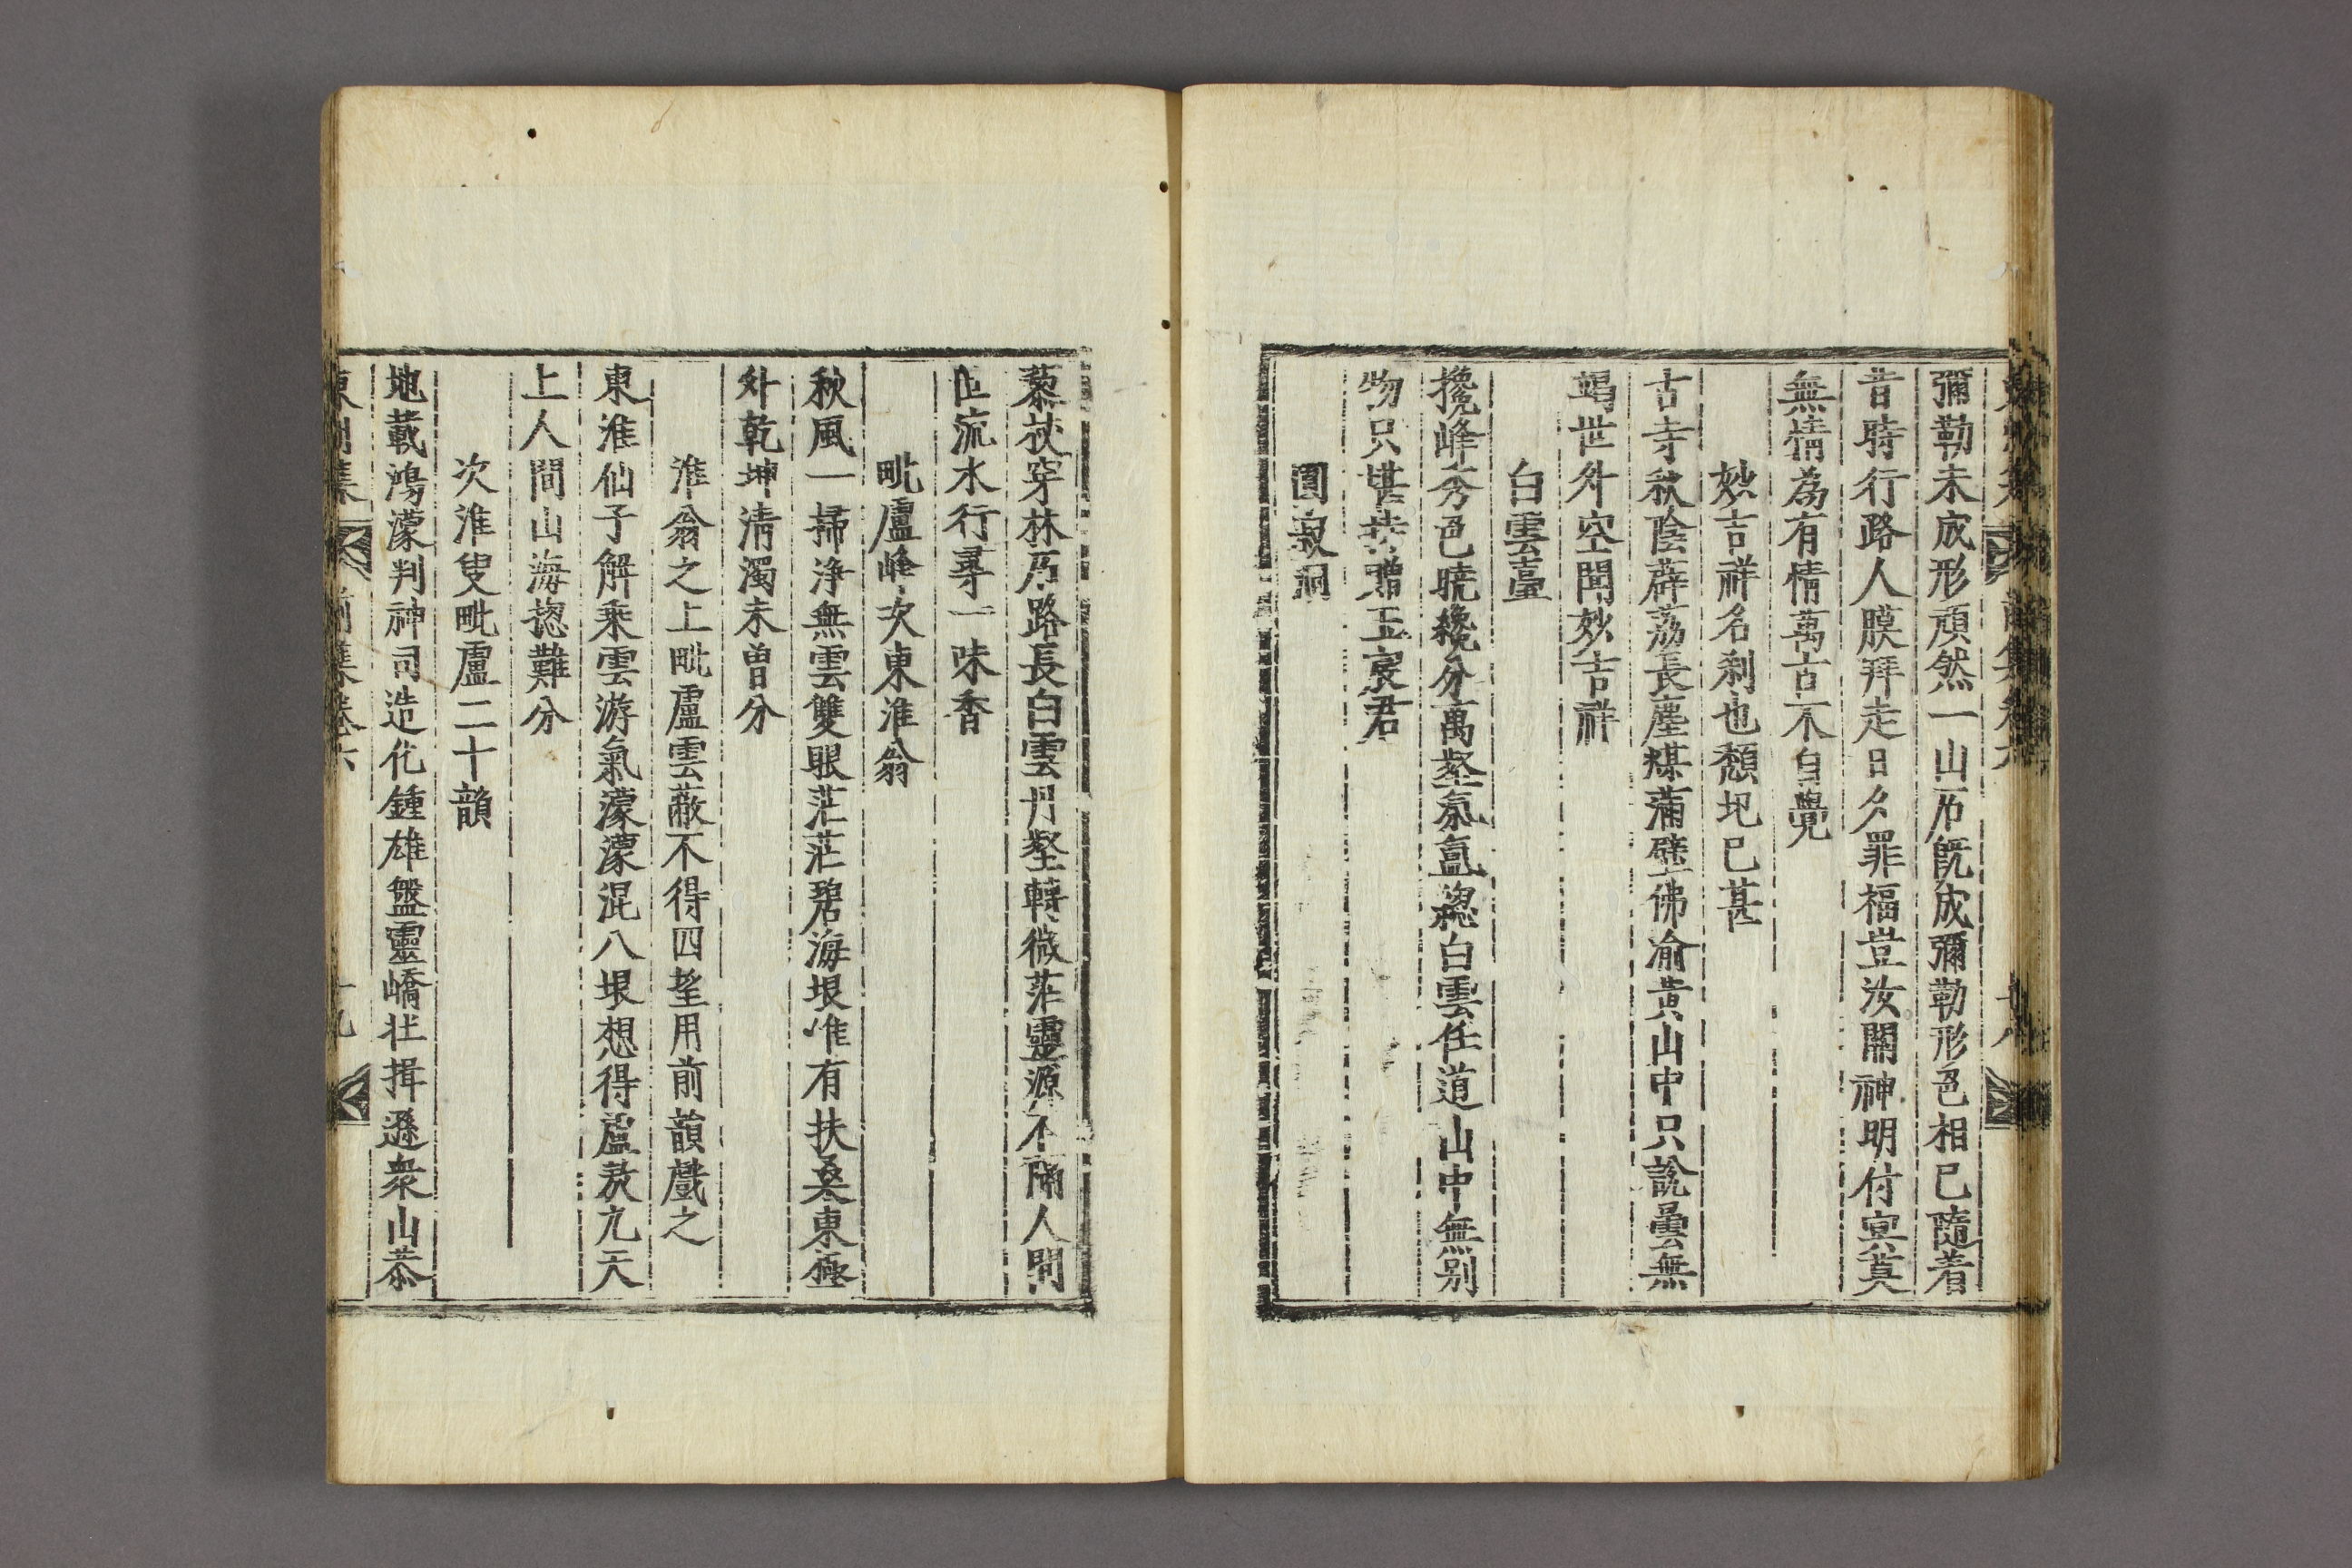 彌勒未成形頑然一山石旣成彌勒形色相已隨着
昔時行路人膜拜走日夕罪福豈汝關神明付宲莫
無情為有情萬古不自覺
妙吉祥名刹也頹圯已甚
古寺秋陰薜荔長塵煤蒲壁佛渝黃山中只說曇無
竭世外空聞妙吉祥
白雲臺
攙峰秀色曉纔分萬壑氛氳揔白雲任道山中無別
物只堪持贈玉宸君
圓寂洞
藜杖穿林石路長白雲丹壑轉微茫靈源不隔人間
世流水行尋一味香
毗盧峰次東淮翁
秋風一掃淨無雲雙眼茫茫碧海垠唯有扶桑東極
外乾坤清濁未曾分
淮翁之上毗盧雲蔽不得四望用前韻戲之
東淮仙子解乘雲游氣濛濛混八垠想得盧敖亢天
上人間山海揔難分
次淮叟毗盧二十韻
地載鴻濛判神司造化鍾雄盤靈嶠壯揖遜衆山恭
前集卷六
十九